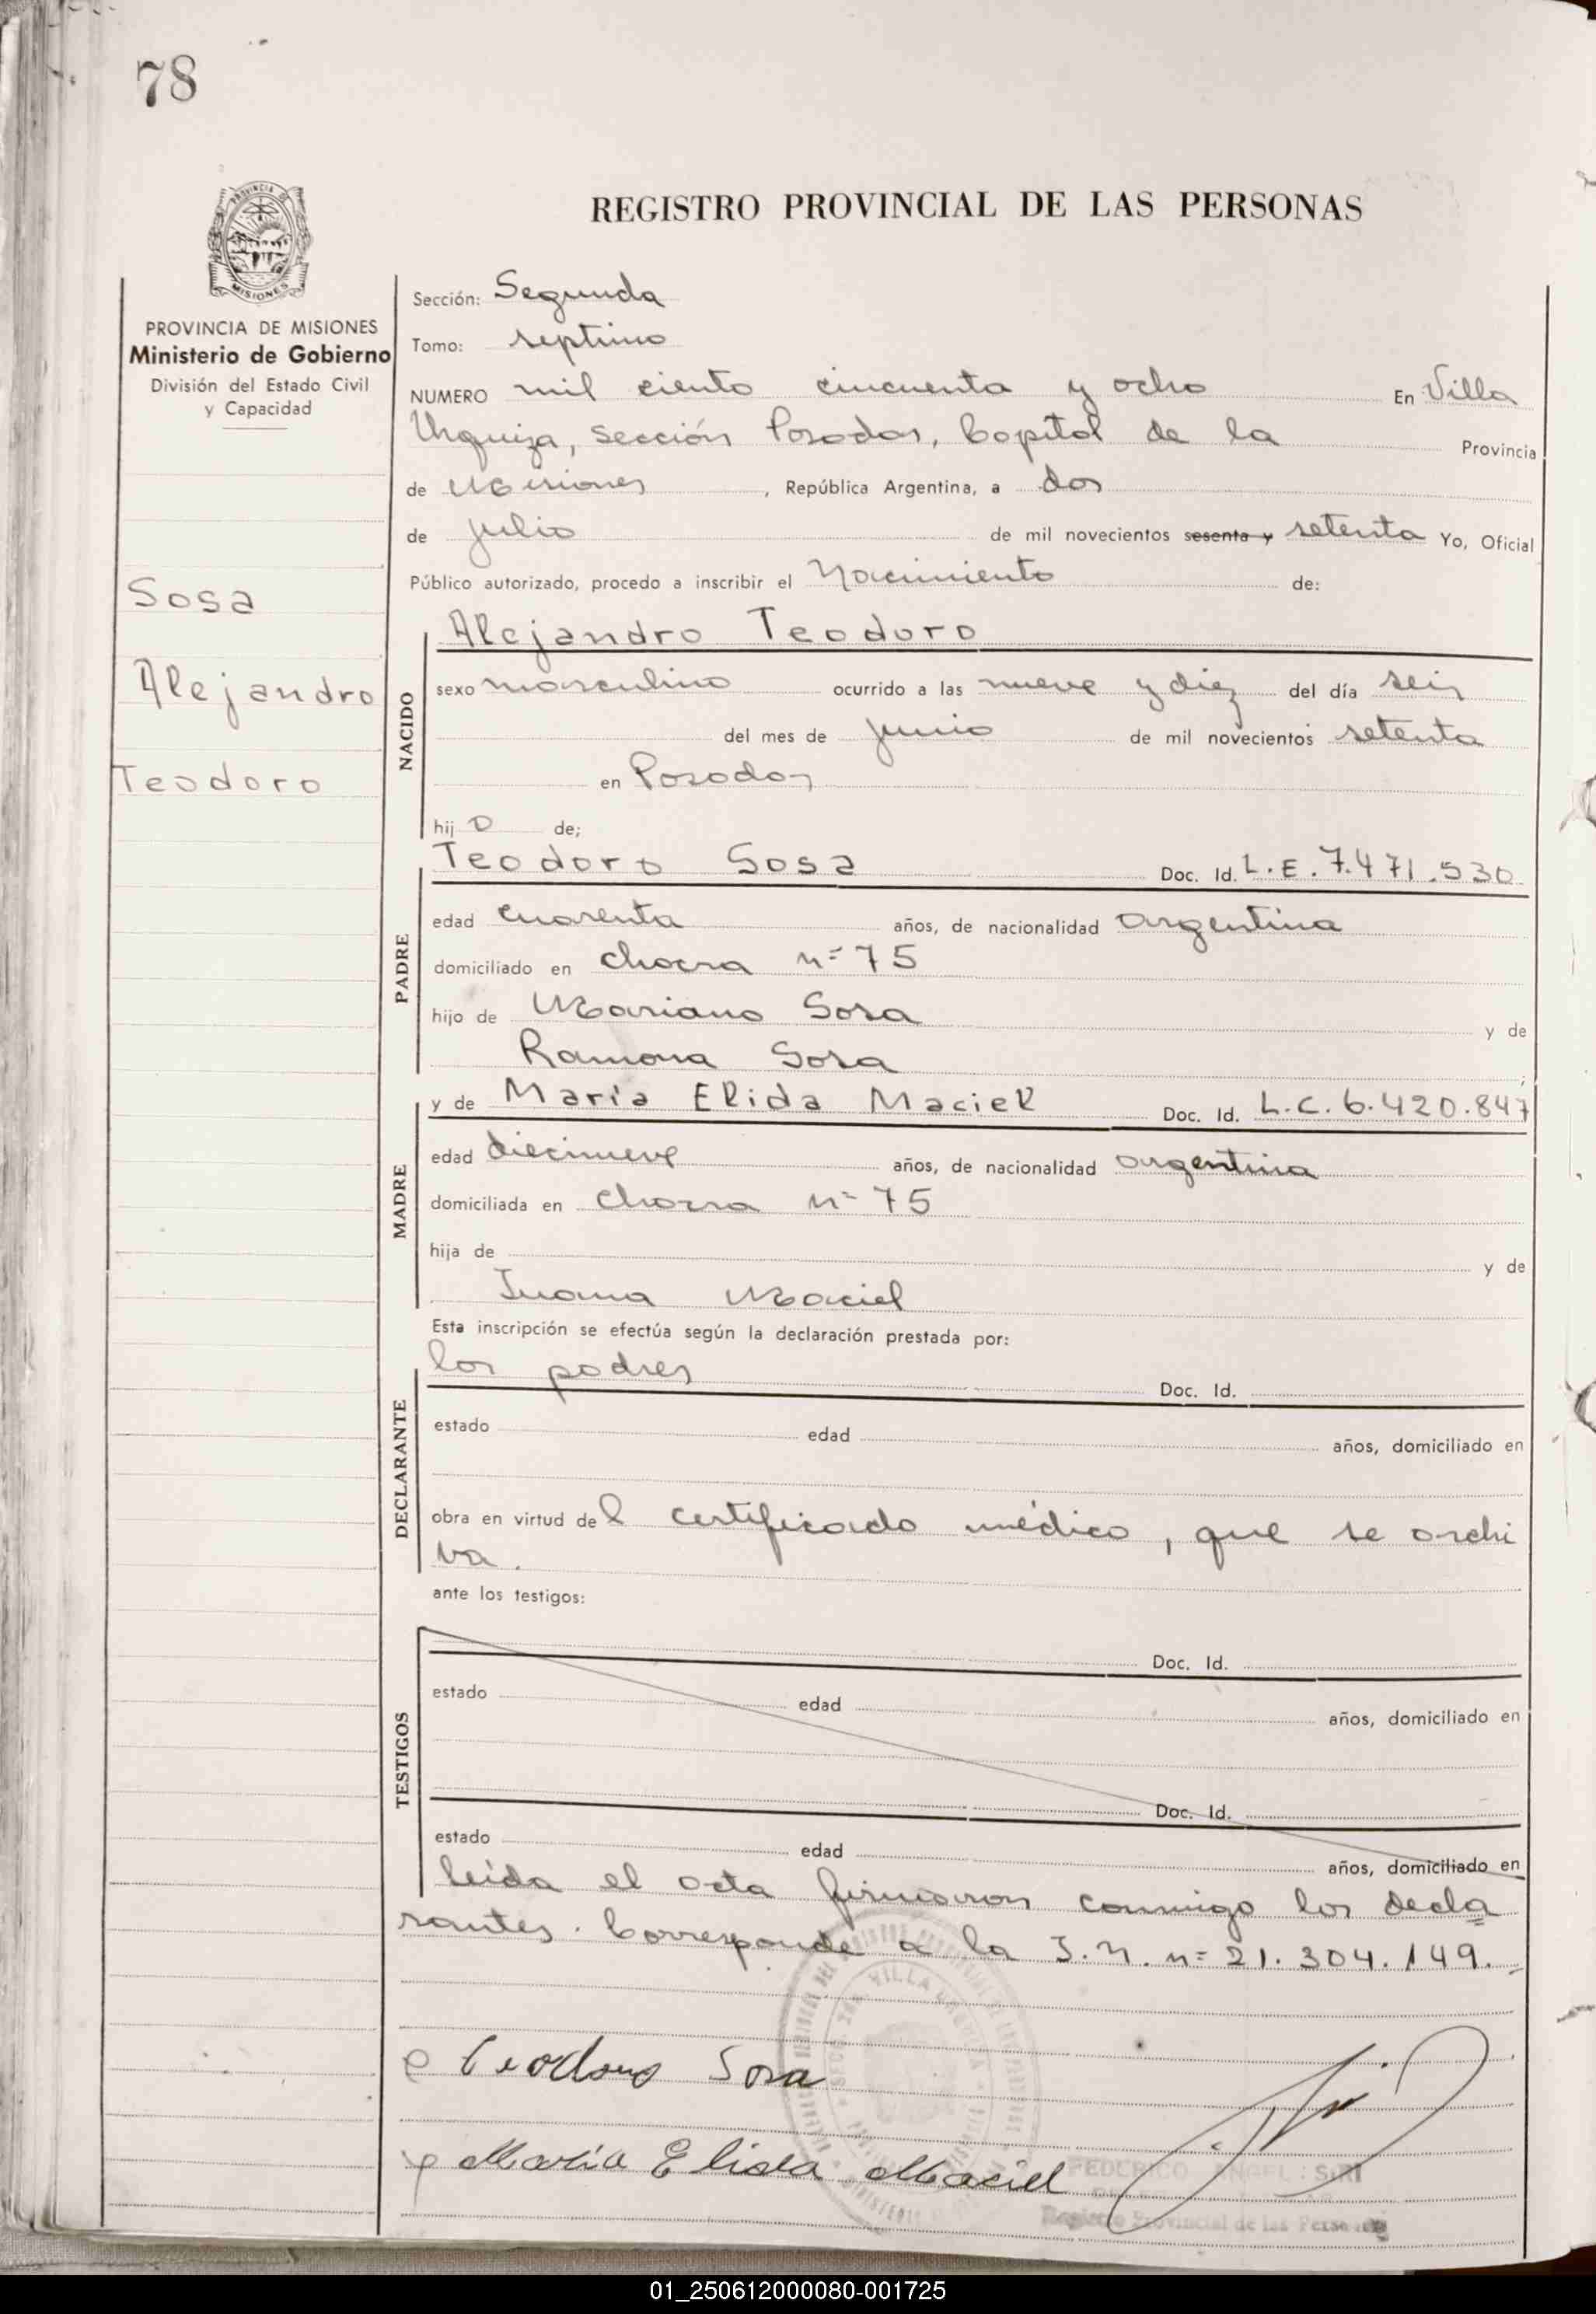 78
PROVINCIA DE
MISIONES
REGISTRO PROVINCIAL DE LAS PERSONAS
PROVINCIA DE MISIONES
Ministerio de Gobierno
División del Estado Civil
y Capacidad
Sosa
Alejandro
Teodoro
Sección: Segunda
Tomo: septimo
NUMERO mil ciento cincuenta y ocho En Villa
Urquiza, sección Posadas, Capital de la Provincia
de Misiones, República Argentina, a dos
de julio de mil novecientos sesenta y setenta Yo, Oficial
Público autorizado, procedo a inscribir el Nacimiento de:
NACIDO
Alejandro Teodoro
sexo masculino ocurrido a las nueve y diez del día seis
del mes de junio de mil novecientos setenta
en Posadas
hijo de;
PADRE
Teodoro Sosa Doc. Id. L.E. 7.471.530
edad cuarenta años, de nacionalidad argentina
domiciliado en chacra nº 75
hijo de Mariano Sosa y de
Ramona Sosa;
MADRE
y de María Elida Maciel Doc. Id. L.C. 6.420.847
edad diecinueve años, de nacionalidad argentina
domiciliada en chacra nº 75
hija de y de
Juana Maciel
Esta inscripción se efectúa según la declaración prestada por:
DECLARANTE
los padres Doc. Id.
estado edad años, domiciliado en
obra en virtud del certificado médico, que se archi
va.
ante los testigos:
TESTIGOS
Doc. Id.
estado edad años, domiciliado en
Doc. Id.
estado edad años, domiciliado en
leída el acta firmaron conmigo los decla
rantes. Corresponde a la I.N. nº 21.304.149.
Teodoro Sosa
María Elida Maciel
FEDERICO ANGEL
Registro Provincial de las Personas
01_250612000080-001725